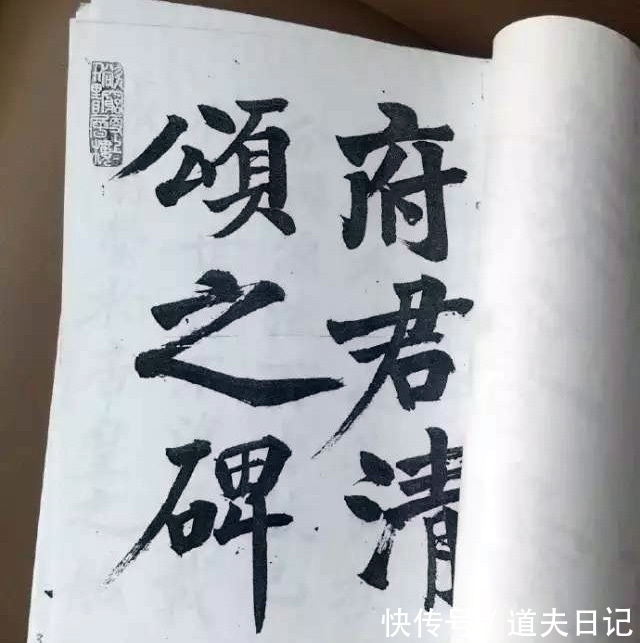 府君清
頌之碑
快传号 / 道夫日记